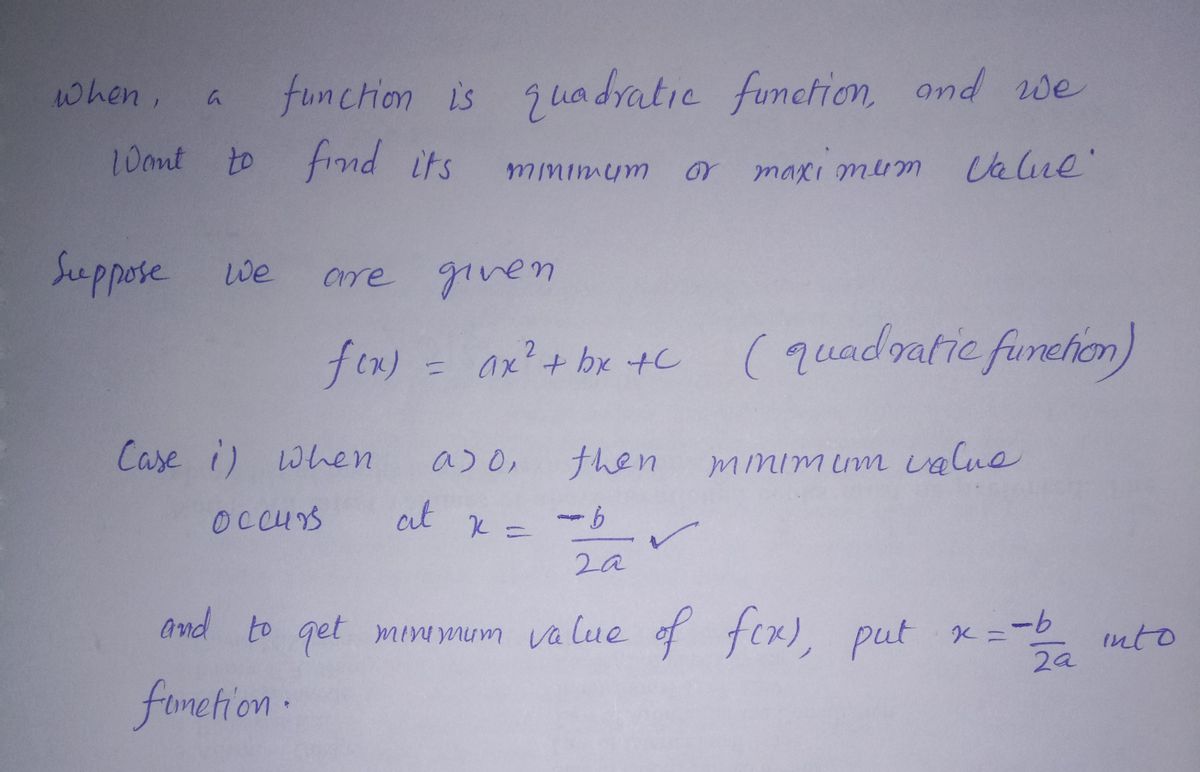 when, a function is quadratic function, and we
want to find its minimum or maximum value.
Suppose we are given
f(x) = ax² + bx + c (quadratic function)
Case i) when a>0, then minimum value
occurs at x = -b/2a ✓
and to get minimum value of f(x), put x = -b/2a into
function.